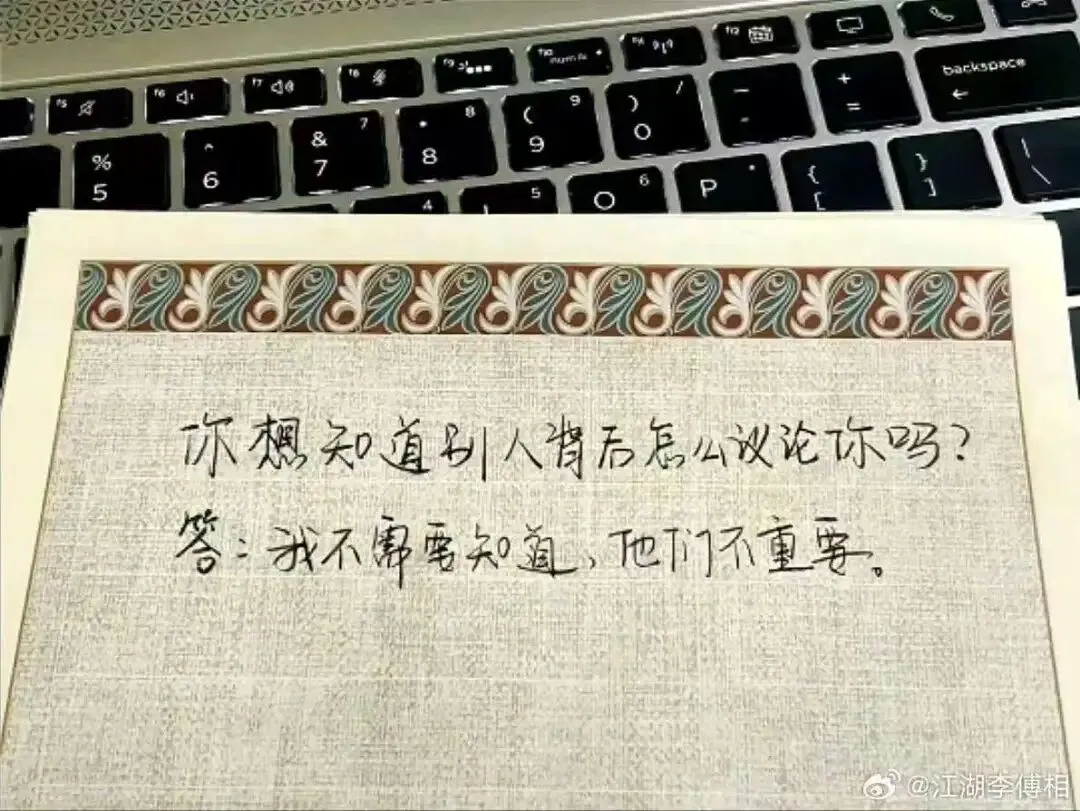 f5
f6
f7
f8
f9
f10
f11
f12
num lk
%
5
^
6
&
7
7
*
8
8
(
9
9
)
/
0
—
-
+
=
backspace
←
4
5
O
6
P
*
{
[
}
]
|
\
你想知道别人背后怎么议论你吗？
答：我不需要知道，他们不重要。
@江湖李傅相